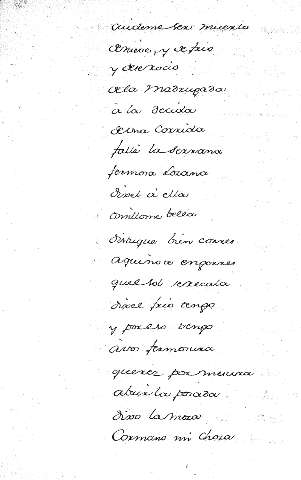 cuideme ser muerto
de nieve, y de frio
y dese rocio
de la Madrugada
à la decida
de una Corrida
fallè la serrana
fermosa lozana
dixel à ella
omillome bella
dis tu que bien corres
aqui no te engorres
quel sol se recuda
dixel frio tengo
y por eso vengo
à vos fermosura
queret por mesura
abrir la posada
dixo la moza
Cormano mi choza